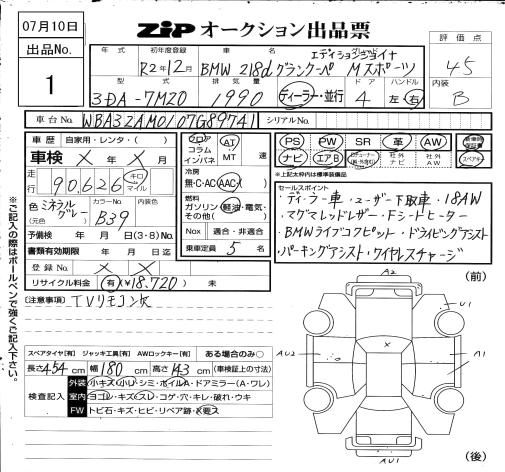 07月10日
ZIP オークション出品票
出品No.
1
年式 初年度登録 車名 グレード 評価点
R2年12月 BMW 218d グランクーペ エディションジョイナ Mスポーツ 45
型式 排気量 ドア ハンドル 内装
3DA-7M20 1990 ディーラー・並行 4 左・右 B
車台No. WBA32AM0107G89741 シリアルNo.
車歴 自家用・レンタ・( )
車検 × 年 × 月
走行 90,626 キロ マイル
色 ミネラルグレー カラーNo. B39 内装色
予備検 年 月 日(3・8)No.
書類有効期限 年 月 日
登録No. × ×
リサイクル料金 有(¥18,720) 未
フロア コラム インパネ AT MT 速
冷房 無・C・AC AAC
燃料 ガソリン・軽油・電気・その他( )
Nox 適合・非適合
乗車定員 5 名
PS PW SR 革 AW
ナビ エアB 社外ナビ 社外AW スペアキー
※上記太枠内は標準装備品
セールスポイント
ディーラー車・ユーザー下取車・18AW
マグマレッドレザー・Fシートヒーター
・BMWライブコクピット・ドライビングアシスト
・パーキングアシスト・ワイヤレスチャージ
(注意事項) TVリモコン欠
※ご記入の際はボールペンで強くご記入下さい。
スペアタイヤ[有] ジャッキ工具[有] AWロックキー[有] ある場合のみ○
長さ 454 cm 幅 180 cm 高さ 143 cm (車検証上の寸法)
検査記入
外装 小キズ・小U・シミ・ホイルA・ドアミラー(A・ワレ)
室内 ヨゴレ・キズ・スレ・コゲ・穴・キレ・破れ・ウキ
FW トビ石・キズ・ヒビ・リペア跡・X要ス
(前)
A2
U1
AU2
×
A1
AU1
(後)